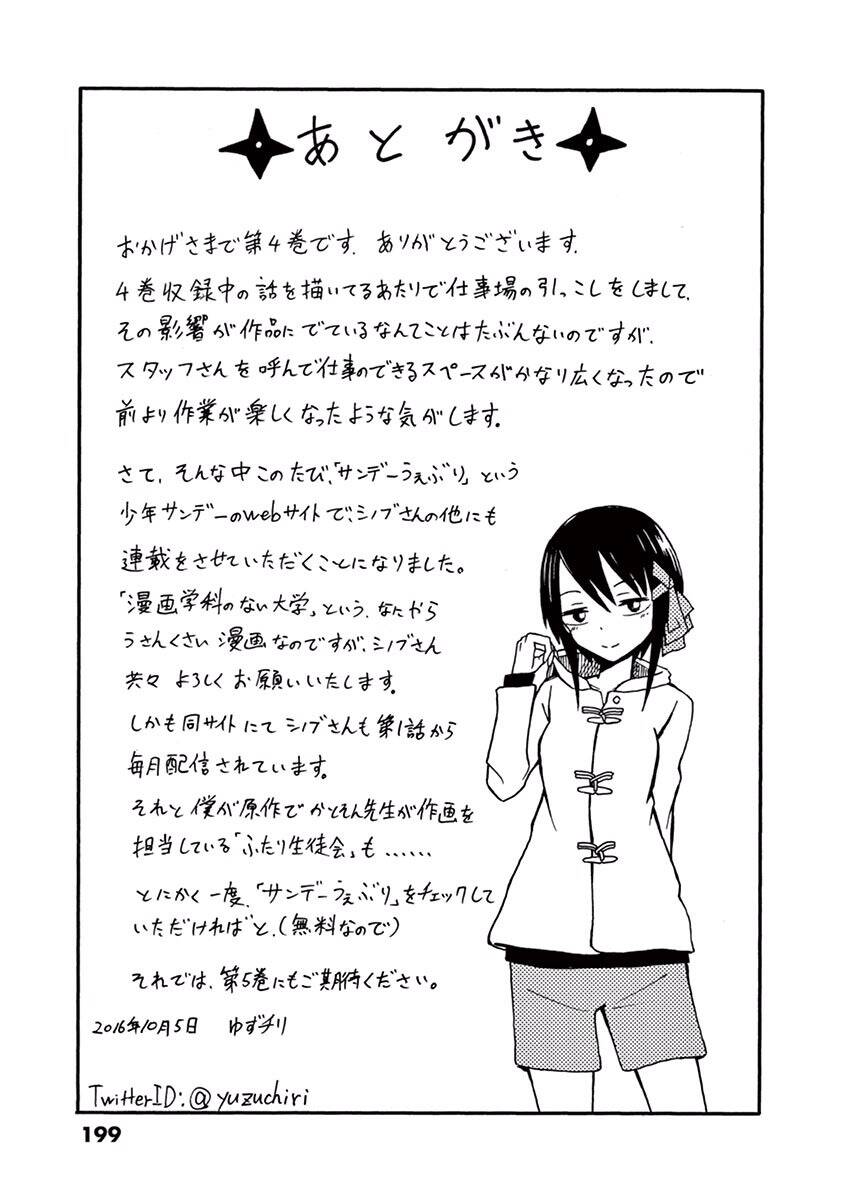 あとがき
おかげさまで第4巻です. ありがとうございます.
4巻収録中の話を描いてるあたりで仕事場の引っこしをしまして、
その影響が作品にでているなんてことはたぶんないのですが、
スタッフさんを呼んで仕事のできるスペースがかなり広くなったので
前より作業が楽しくなったような気がします。
さて、そんな中このたび、「サンデーうぇぶり」という
少年サンデーのwebサイトで、シノブさんの他にも
連載をさせていただくことになりました。
「漫画学科のない大学」という、なにから
うさんくさい漫画なのですが、シノブさん
共々 よろしくお願いいたします。
しかも同サイトにてシノブさんも第1話から
毎月配信されています。
それと僕が原作でかとそん先生が作画を
担当している「ふたり生徒会」も……
とにかく一度、「サンデーうぇぶり」をチェックして
いただければと、(無料なので)
それでは、第5巻にもご期待ください。
2016年10月5日 ゆずチリ
TwitterID:@yuzuchiri
199